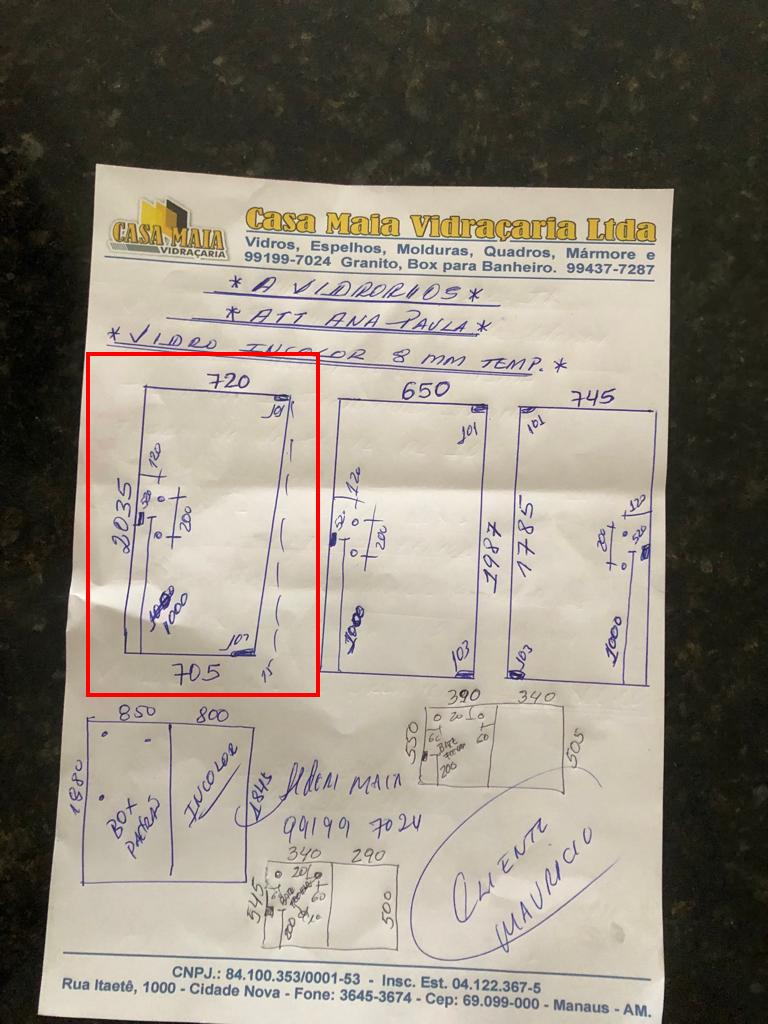 CASA MAIA
VIDRAÇARIA
Casa Maia Vidraçaria Ltda
Vidros, Espelhos, Molduras, Quadros, Mármore e
99199-7024 Granito, Box para Banheiro. 99437-7287
* A VIDRORIOS *
* ATT ANA PAULA *
* VIDRO INCOLOR 8 MM TEMP. *
720
101
120
2035
520
200
1000
705
15
650
101
120
520
200
1987
1000
103
745
101
1785
120
200
520
1000
103
850 800
1880
BOX
PADRÃO
INCOLOR
1845
MAIA
99199 7024
390 340
550
20
60
60
200
505
340 290
545
20
60
200
10
500
CLIENTE
MAURICIO
CNPJ.: 84.100.353/0001-53 - Insc. Est. 04.122.367-5
Rua Itaetê, 1000 - Cidade Nova - Fone: 3645-3674 - Cep: 69.099-000 - Manaus - AM.